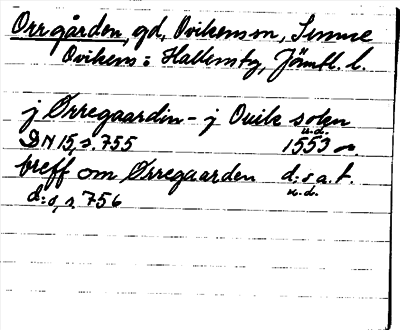 Orrgården, gd, Ovikens sn, Sunne
Ovikens: Hallensty, Jämtl. l.
j Ørregaardin - j Ouik sokn
DN 15, s. 755 1553 u.d. or.
breff om Ørregaarden d:s a. t.
d:o, s. 756 u.d.